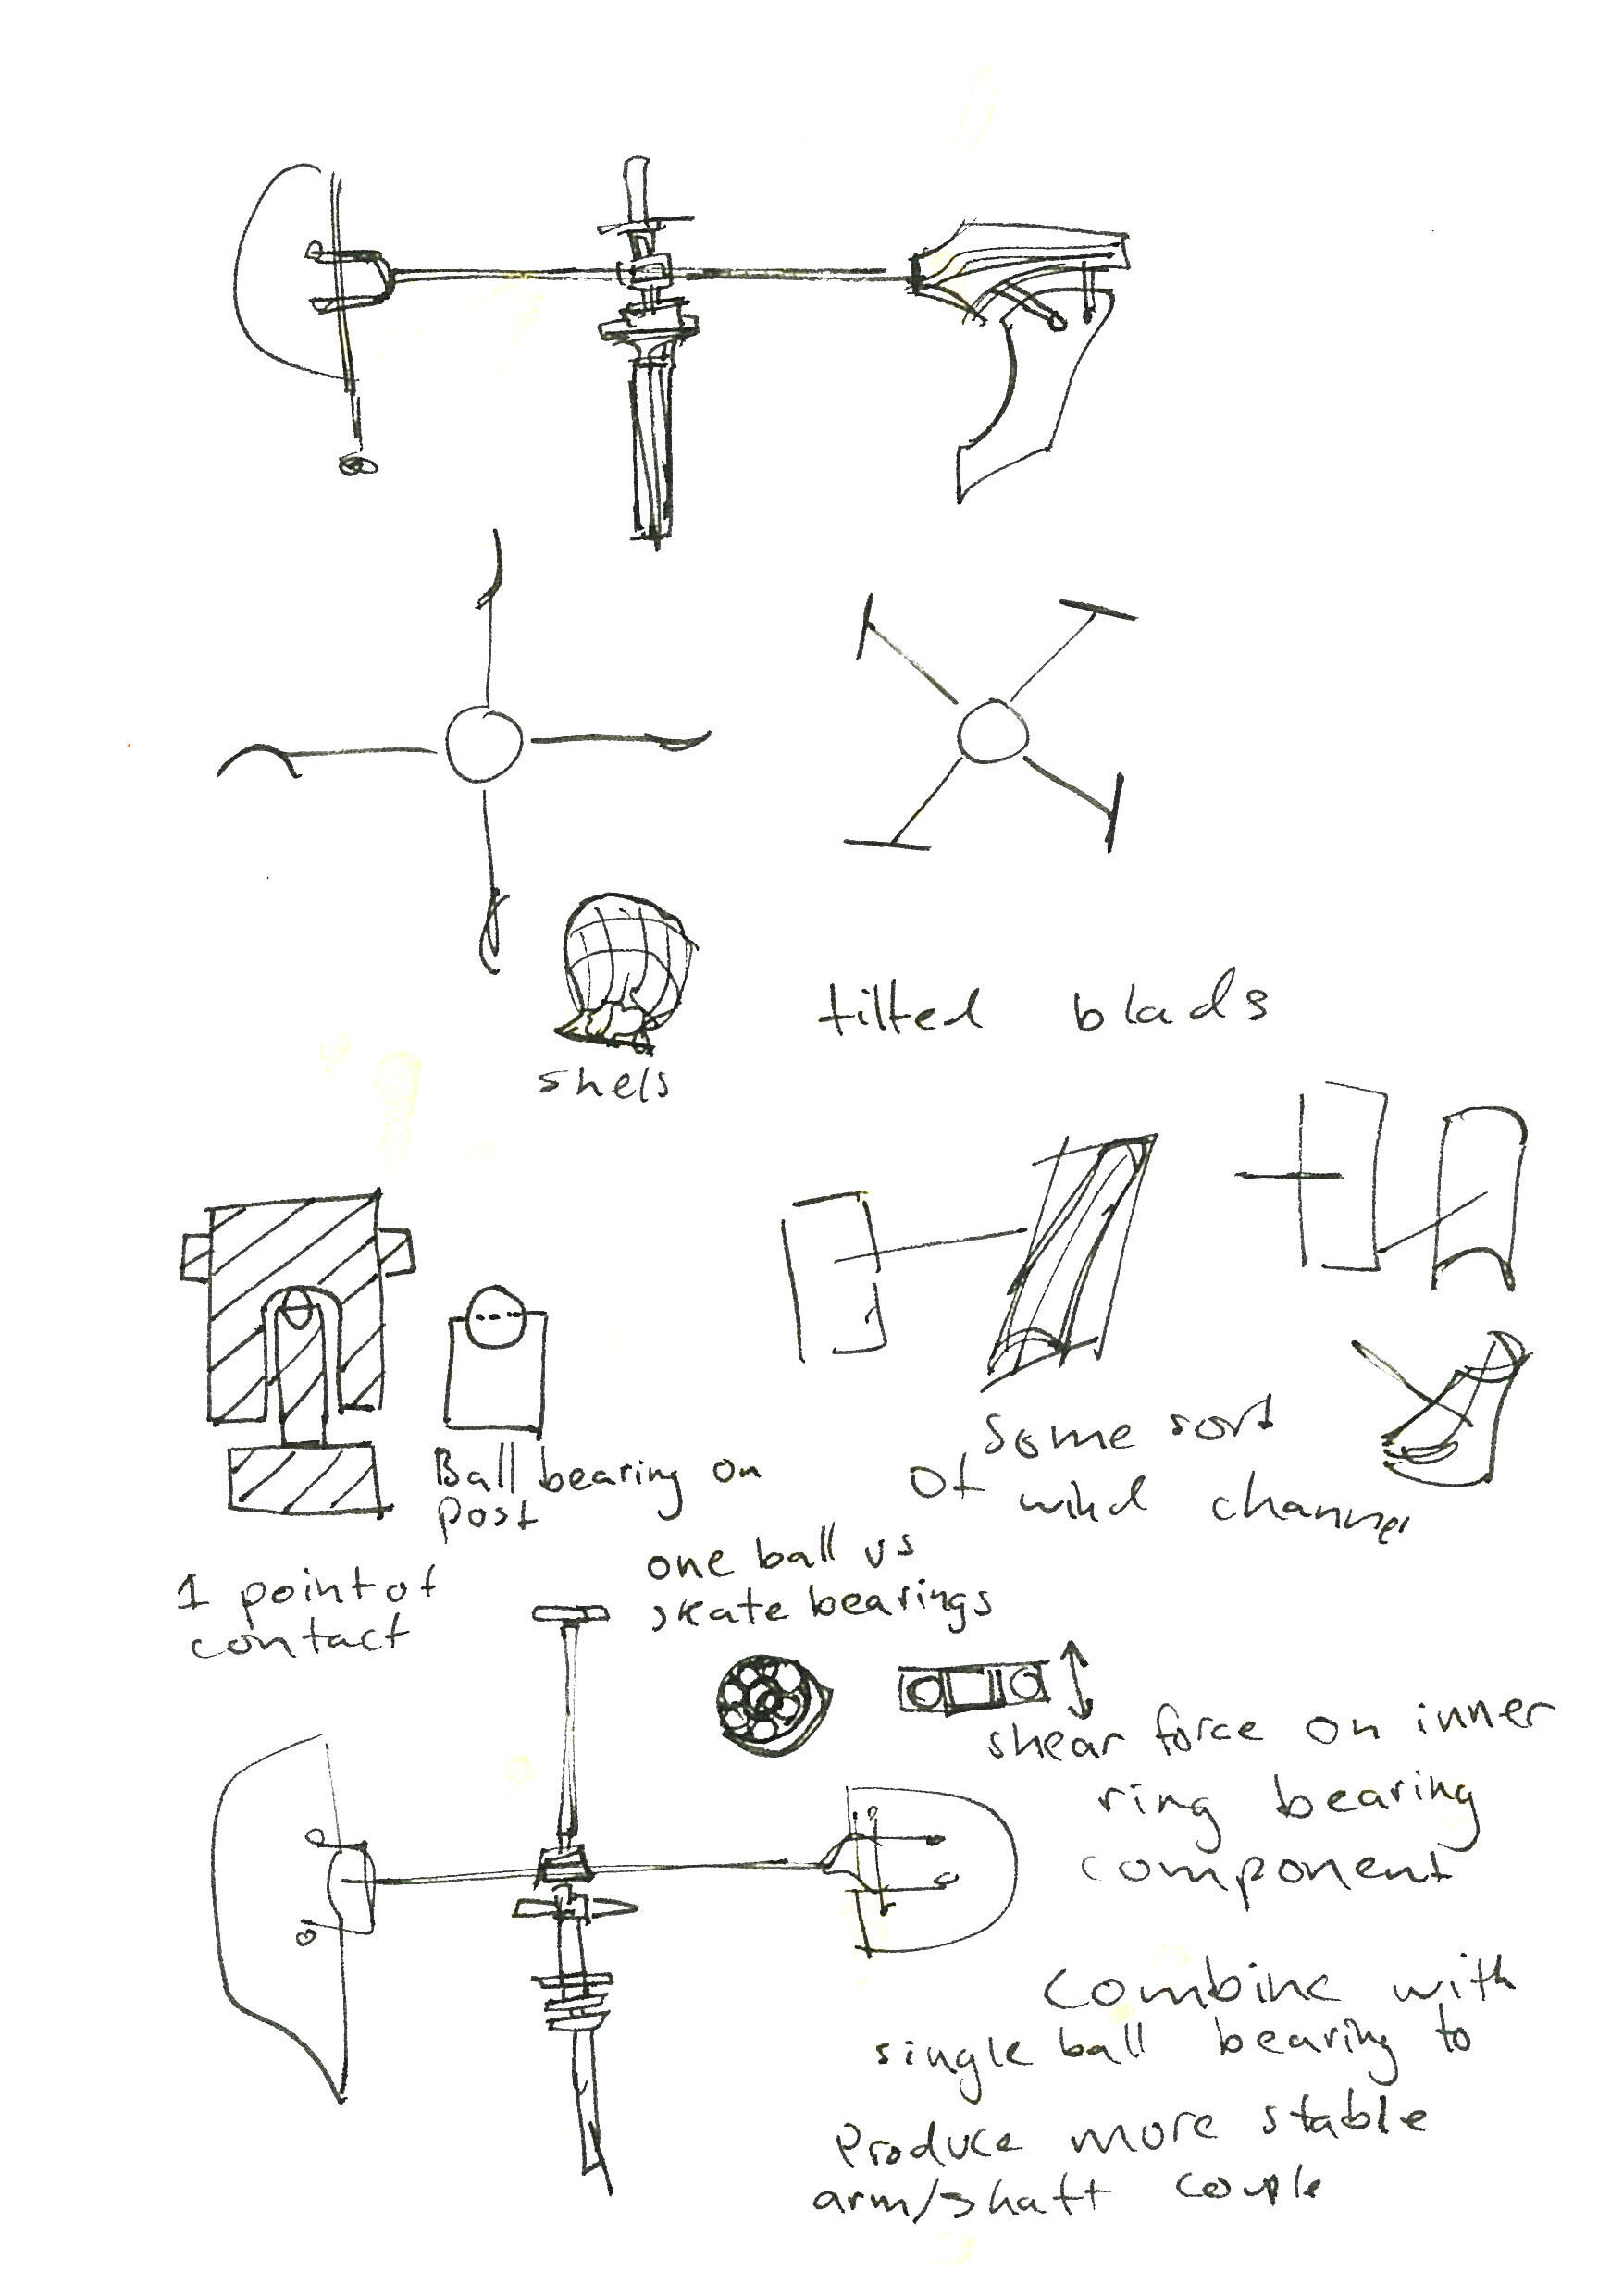 shels
tilted blads
Ball bearing on
post
some sort
of wind channel
1 point of
contact
one ball vs
skate bearings
shear force on inner
ring bearing
component
combine with
single ball bearing to
Produce more stable
arm/shaft couple